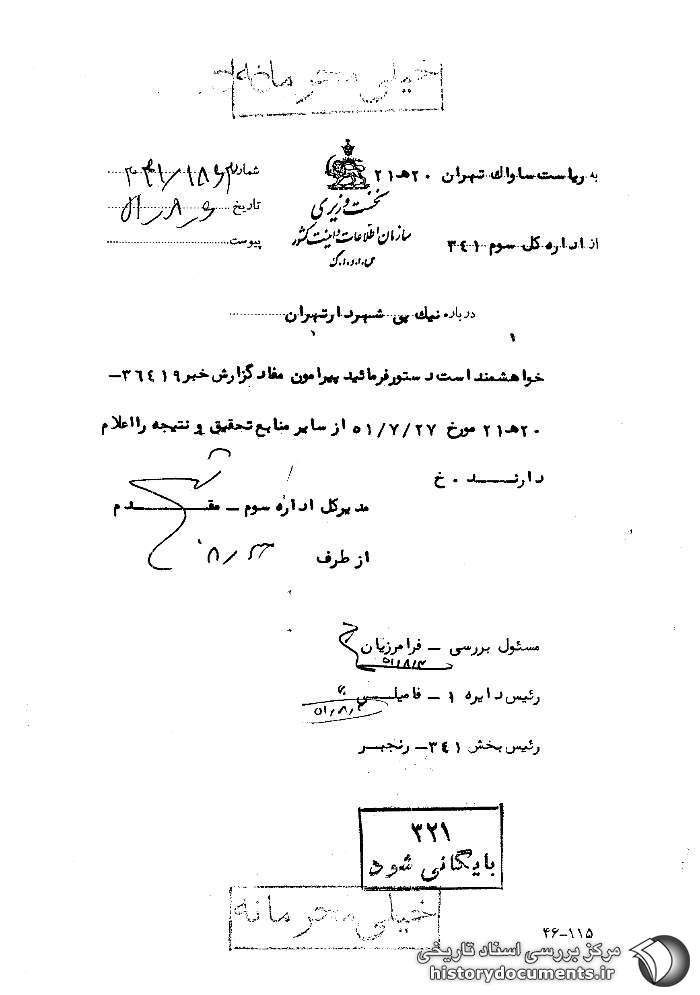 خیلی محرمانه
به ریاست ساواک تهران ۲۰هـ۲۱
شماره
نخست وزیری
تاریخ
سازمان اطلاعات و امنیت کشور
س.ا.و.ا.ک
پیوست
از اداره کل سوم ۳٤۱
درباره نیک پی شهردار تهران
خواهشمند است دستور فرمائید پیرامون مفاد گزارش خبر ۳٦٤۱۹-
۲۰هـ۲۱ مورخ ۵۱/۷/۲۷ از سایر منابع تحقیق و نتیجه را اعلام
دارنـــد . خ
مدیرکل اداره سوم - مقـــدم
از طرف
مسئول بررسی - فرامرزیان
رئیس دایره ۱ - فامیلـــی
رئیس بخش ۳٤۱ - رنجبـر
۳۲۱
بایگانی شود
خیلی محرمانه
۴۶-۱۱۵
مرکز بررسی اسناد تاریخی
historydocuments.ir